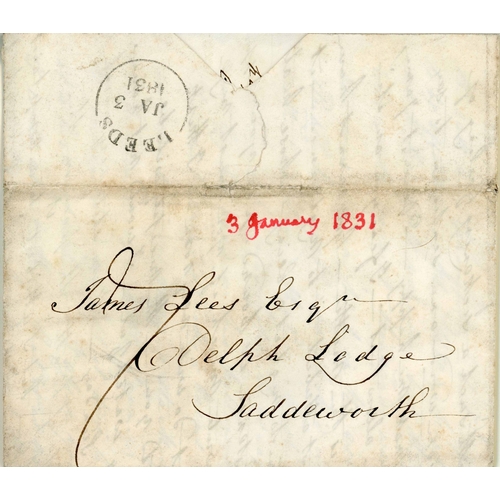 LEEDS
JA 3
1831
3 January 1831
James Lees Esqr
Delph Lodge
Saddeworth